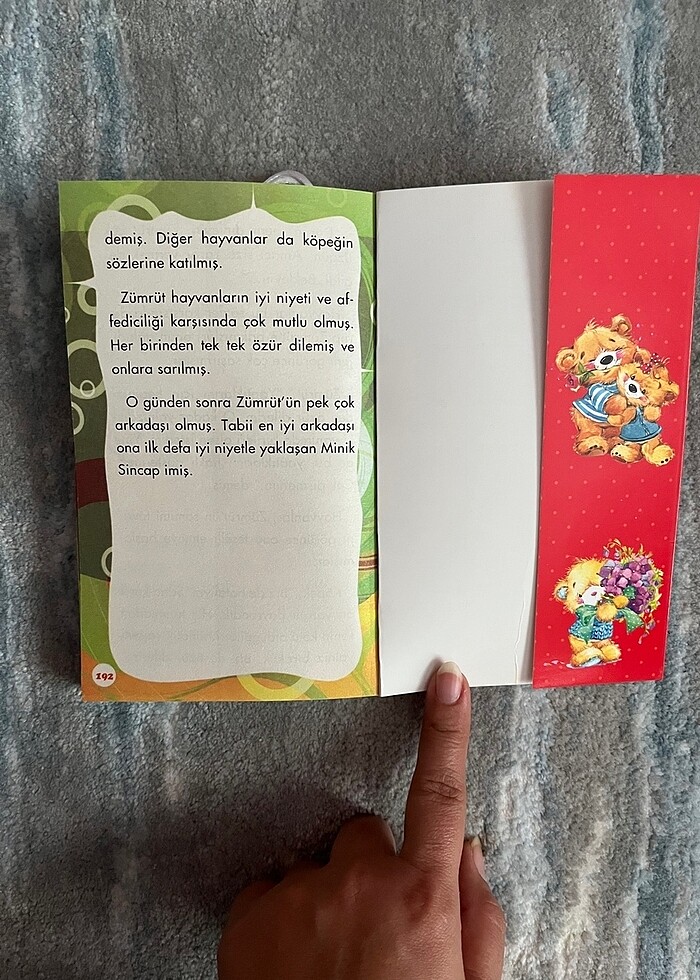 demiş. Diğer hayvanlar da köpeğin
sözlerine katılmış.
Zümrüt hayvanların iyi niyeti ve af-
fediciliği karşısında çok mutlu olmuş.
Her birinden tek tek özür dilemiş ve
onlara sarılmış.
O günden sonra Zümrüt'ün pek çok
arkadaşı olmuş. Tabii en iyi arkadaşı
ona ilk defa iyi niyetle yaklaşan Minik
Sincap imiş.
192